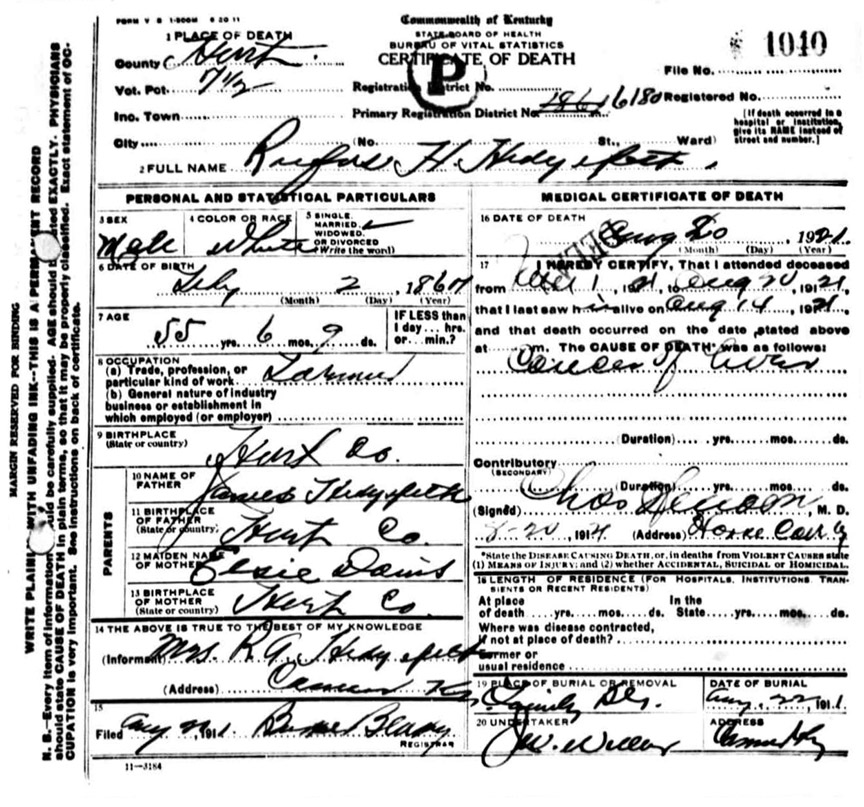 FORM V S 1-500M 6 20 11
Commonwealth of Kentucky
STATE BOARD OF HEALTH
BUREAU OF VITAL STATISTICS
CERTIFICATE OF DEATH
P
1 PLACE OF DEATH
County Hart
Vot. Pct.
Inc. Town
City (No. St., Ward)
Registration District No.
Primary Registration District No. 6180
File No. 1040
Registered No.
[If death occurred in a hospital or institution, give its NAME instead of street and number.]
2 FULL NAME Rufus H Hedgepeth
PERSONAL AND STATISTICAL PARTICULARS
3 SEX Male
4 COLOR OR RACE White
5 SINGLE, MARRIED, WIDOWED, OR DIVORCED (Write the word)
6 DATE OF BIRTH Feby 2 186
(Month) (Day) (Year)
7 AGE 55 yrs. 6 mos. 9 ds.
IF LESS than 1 day... hrs. or... min.?
8 OCCUPATION
(a) Trade, profession, or particular kind of work Farmer
(b) General nature of industry business or establishment in which employed (or employer)
9 BIRTHPLACE (State or country) Hart Co.
PARENTS
10 NAME OF FATHER James Hedgepeth
11 BIRTHPLACE OF FATHER (State or country) Hart Co.
12 MAIDEN NAME OF MOTHER Elsie Davis
13 BIRTHPLACE OF MOTHER (State or country) Hart Co.
14 THE ABOVE IS TRUE TO THE BEST OF MY KNOWLEDGE
(Informant) Mrs. R. Hedgepeth
(Address) Ky
15
Filed Aug 191
REGISTRAR
11-3184
MEDICAL CERTIFICATE OF DEATH
16 DATE OF DEATH Aug 20, 1921
(Month) (Day) (Year)
17 I HEREBY CERTIFY, That I attended deceased
from 1, 1921, to Aug 20, 1921,
that I last saw h alive on Aug 14, 1921,
and that death occurred on the date stated above
at m. The CAUSE OF DEATH* was as follows:
Cancer of Liver
(Duration) yrs. mos. ds.
Contributory (SECONDARY)
(Duration) yrs. mos. ds.
(Signed) Chas, M. D.
8-20, 1921 (Address) Horse Cave Ky
*State the DISEASE CAUSING DEATH, or, in deaths from VIOLENT CAUSES state
(1) MEANS OF INJURY; and (2) whether ACCIDENTAL, SUICIDAL or HOMICIDAL.
18 LENGTH OF RESIDENCE (FOR HOSPITALS, INSTITUTIONS, TRANSIENTS OR RECENT RESIDENTS)
At place of death yrs. mos. ds. In the State yrs. mos. ds.
Where was disease contracted, if not at place of death?
Former or usual residence
19 PLACE OF BURIAL OR REMOVAL Family
DATE OF BURIAL Aug 22, 191
20 UNDERTAKER J.W.
ADDRESS
MARGIN RESERVED FOR BINDING
WRITE PLAINLY WITH UNFADING INK—THIS IS A PERMANENT RECORD
N. B.—Every item of information should be carefully supplied. AGE should be stated EXACTLY. PHYSICIANS
should state CAUSE OF DEATH in plain terms, so that it may be properly classified. Exact statement of OC-
CUPATION is very important. See instructions on back of certificate.